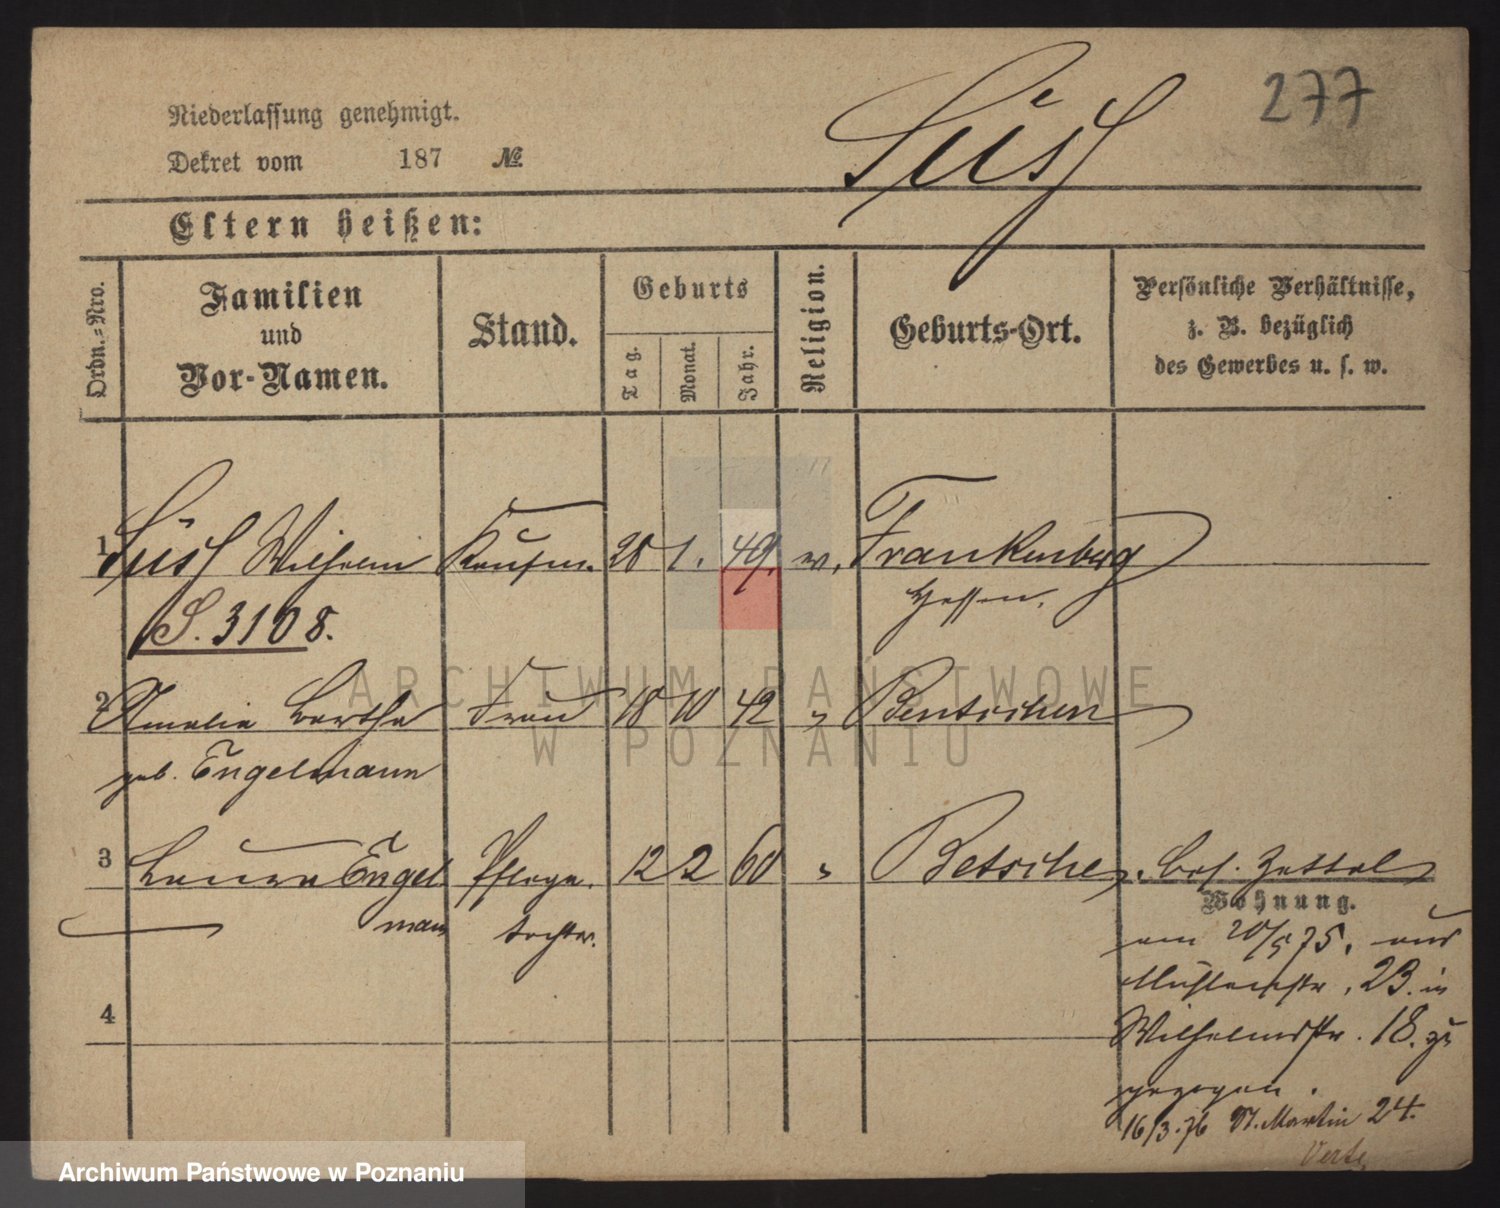 277
Süss
Niederlassung genehmigt.
Dekret vom 187 №
Eltern heißen:
Ordn.-Nro.
Familien und Vor-Namen.
Stand.
Geburts
Tag.
Monat.
Jahr.
Religion.
Geburts-Ort.
Persönliche Verhältnisse,
z. B. bezüglich
des Gewerbes u. s. w.
1 Süss Wilhelm Kaufm. 28 1. 49. Frankenberg
S. 3108. Hessen.
2 Amalie Bertha Frau 18 10 42 " Bentschen
geb. Engelmann
3 Laura Engel Pflege 12 2 60 " Betsche
mann tochter.
bes. Zettel
Wohnung.
am 20/5 75. aus
Mühlenstr. 23. in
Wilhelmstr. 18. zu
gezogen.
16/3.76 St. Martin 24.
Verte
4
ARCHIWUM PAŃSTWOWE
W POZNANIU
Archiwum Państwowe w Poznaniu